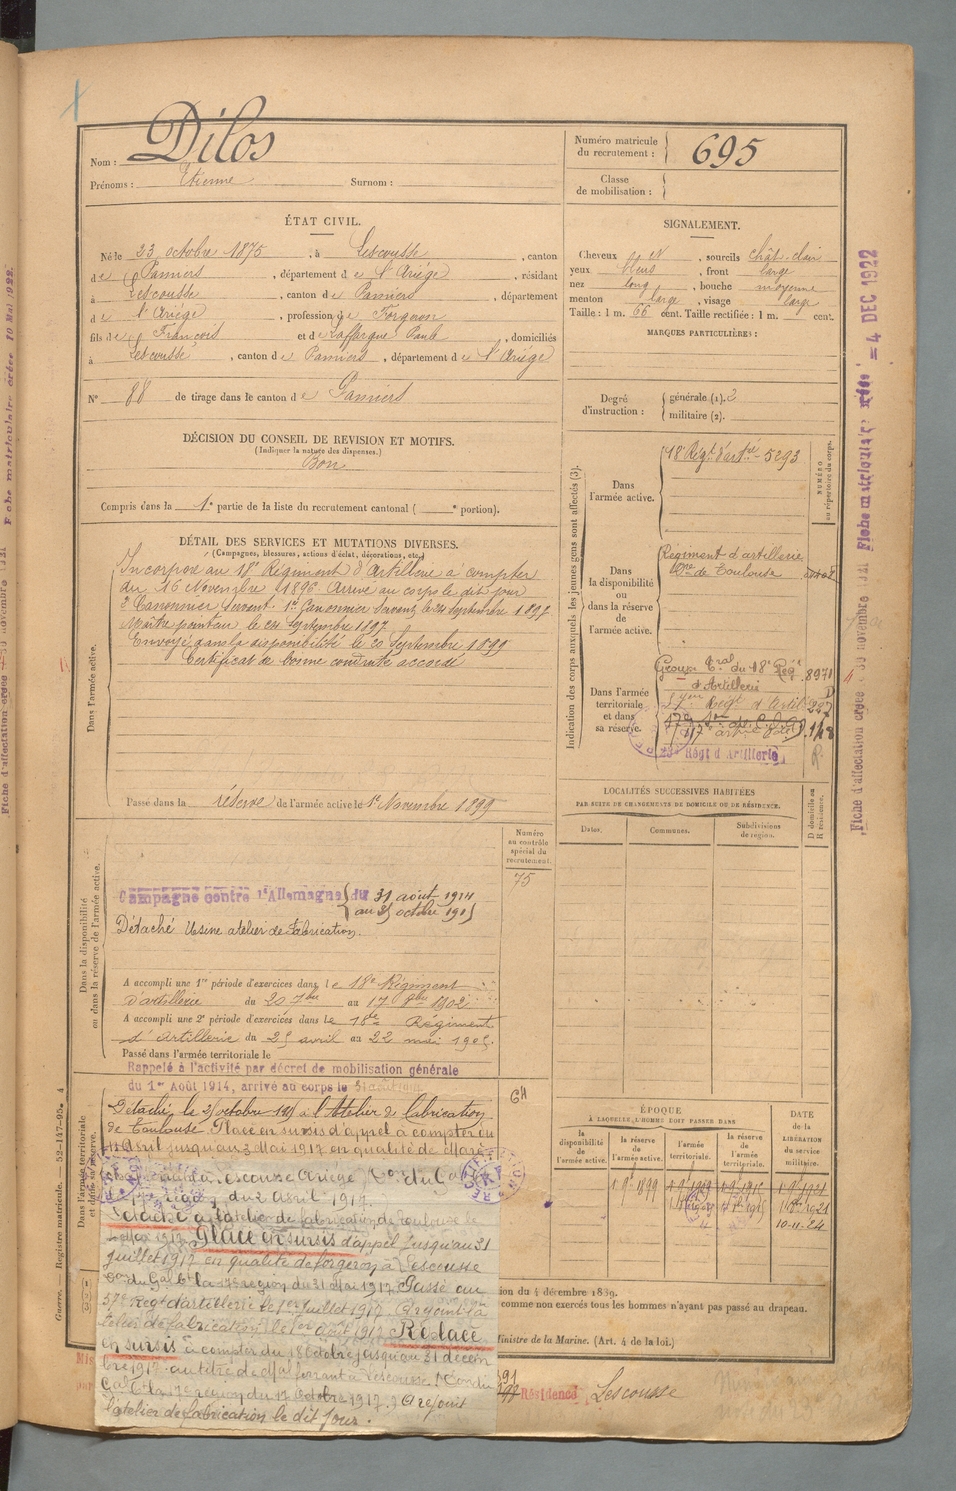 Nom : Dilos
Prénoms : Etienne Surnom :
Numéro matricule du recrutement : 695
Classe de mobilisation :
ÉTAT CIVIL.
Né le 23 octobre 1875, à Lescousse, canton
de Pamiers, département de l'Ariège, résidant
à Lescousse, canton de Pamiers, département
de l'Ariège, profession de Forgeron
fils de François et de Laffargue Paule, domiciliés
à Lescousse, canton de Pamiers, département de l'Ariège
N° 88 de tirage dans le canton de Pamiers
DÉCISION DU CONSEIL DE REVISION ET MOTIFS.
(Indiquer la nature des dispenses.)
Bon
Compris dans la 1e partie de la liste du recrutement cantonal ( e portion).
DÉTAIL DES SERVICES ET MUTATIONS DIVERSES.
(Campagnes, blessures, actions d'éclat, décorations, etc.)
Dans l'armée active.
Incorporé au 18e Régiment d'Artillerie à compter
du 16 Novembre 1896 Arrivé au corps le dit jour
2e Canonnier Servant. 1er Canonnier Servant le 24 Septembre 1897.
Maître pointeur le 24 Septembre 1897
Envoyé dans la disponibilité le 20 Septembre 1899
Certificat de bonne conduite accordé
Passé dans la réserve de l'armée active le 1er Novembre 1899
SIGNALEMENT.
Cheveux N, sourcils chât. clair
yeux bleus, front large
nez long, bouche moyenne
menton large, visage large
Taille : 1 m. 66 cent. Taille rectifiée : 1 m. cent.
MARQUES PARTICULIÈRES :
Degré d'instruction : générale (1). 2
militaire (2).
Indication des corps auxquels les jeunes gens sont affectés (3).
NUMÉRO au répertoire du corps.
Dans l'armée active.
18e Régt d'artrie 5293
Dans la disponibilité ou dans la réserve de l'armée active.
Régiment d'artillerie
de Toulouse
Dans l'armée territoriale et dans sa réserve.
Groupe tral du 18e Régt 8971
d'Artillerie
57eme Régt d'Artie 227
117
23e Régt d'Artillerie
LOCALITÉS SUCCESSIVES HABITÉES
PAR SUITE DE CHANGEMENTS DE DOMICILE OU DE RÉSIDENCE.
Dates. Communes. Subdivisions de région. D domicile ou R résidence.
Dans la disponibilité ou dans la réserve de l'armée active.
Numéro au contrôle spécial du recrutement.
75
Campagne contre l'Allemagne du 31 août 1914
au 25 octobre 1915
Détaché Usine atelier de Fabrication.
A accompli une 1re période d'exercices dans le 18e Régiment
d'artillerie du 20 7bre au 17 8bre 1902
A accompli une 2e période d'exercices dans le 18e Régiment
d'Artillerie du 25 avril au 22 mai 1905.
Passé dans l'armée territoriale le
Rappelé à l'activité par décret de mobilisation générale
du 1er Août 1914, arrivé au corps le 31 août
Dans l'armée territoriale et dans sa réserve.
Détaché le 25 octobre 1915 à l'Atelier de fabrication
de Toulouse. Placé en sursis d'appel à compter du
11 Avril jusqu'au 3 Mai 1917 en qualité de
Lescousse Ariège
17e région du 2 avril 1917.
Détaché à l'atelier de fabrication de Toulouse le
Mai 1917. Placé en sursis d'appel jusqu'au 31
juillet 1917 en qualité de forgeron à Lescousse
On du Gal Ct la 17e région du 31 Mai 1917. Passé au
57e Régt d'artillerie le 1er juillet 1917. A rejoint l'a-
telier de fabrication le 1er août 1917. Replacé
en sursis à compter du 18 Octobre jusqu'au 31 décem-
bre 1917 au titre de Mal ferrant à Lescousse.
Gal Ct la 17e région du 17 Octobre 1917. A rejoint
l'atelier de fabrication le dit jour.
ÉPOQUE
À LAQUELLE L'HOMME DOIT PASSER DANS
la disponibilité de l'armée active. la réserve de l'armée active. l'armée territoriale. la réserve de l'armée territoriale.
DATE de la LIBÉRATION du service militaire.
1. 9bre 1899
10-11-24
ion du 4 décembre 1839.
comme non exercés tous les hommes n'ayant pas passé au drapeau.
Ministre de la Marine. (Art. 4 de la loi.)
Résidence Lescousse
Guerre. — Registre matricule. 52-147-95. 4
Fiche matriculaire créée = 4 DEC 1922
Fiche d'affectation créée 30 novembre 1921
Fiche matriculaire créée 10 Mai 1922